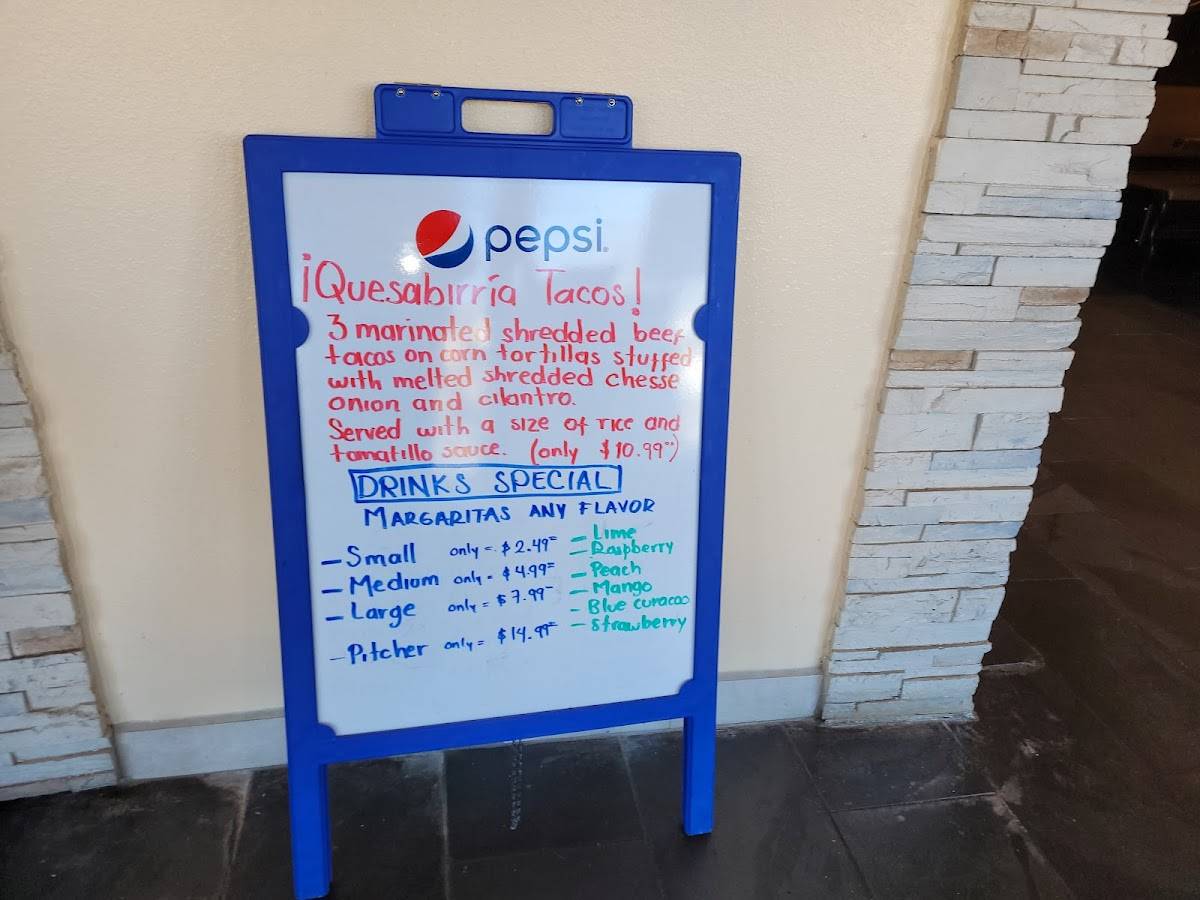 pepsi
¡Quesabirría Tacos!
3 marinated shredded beef
tacos on corn tortillas stuffed
with melted shredded chesse
onion and cilantro.
Served with a size of rice and
tamatillo sauce. (only $10.99")
DRINKS SPECIAL
MARGARITAS ANY FLAVOR
- Small only = $2.49=
- Medium only = $4.99=
- Large only = $7.99-
- Pitcher only = $14.99=
- Lime
- Raspberry
- Peach
- Mango
- Blue curacao
- Strawberry